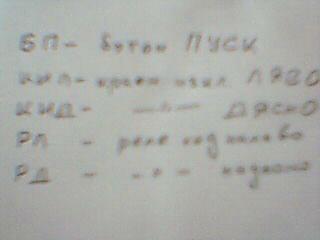 БП - бутон ПУСК
КИЛ - краен изкл. ЛЯВО
КИД - -"- ДЯСНО
РЛ - реле под наляво
РД - -"- надясно